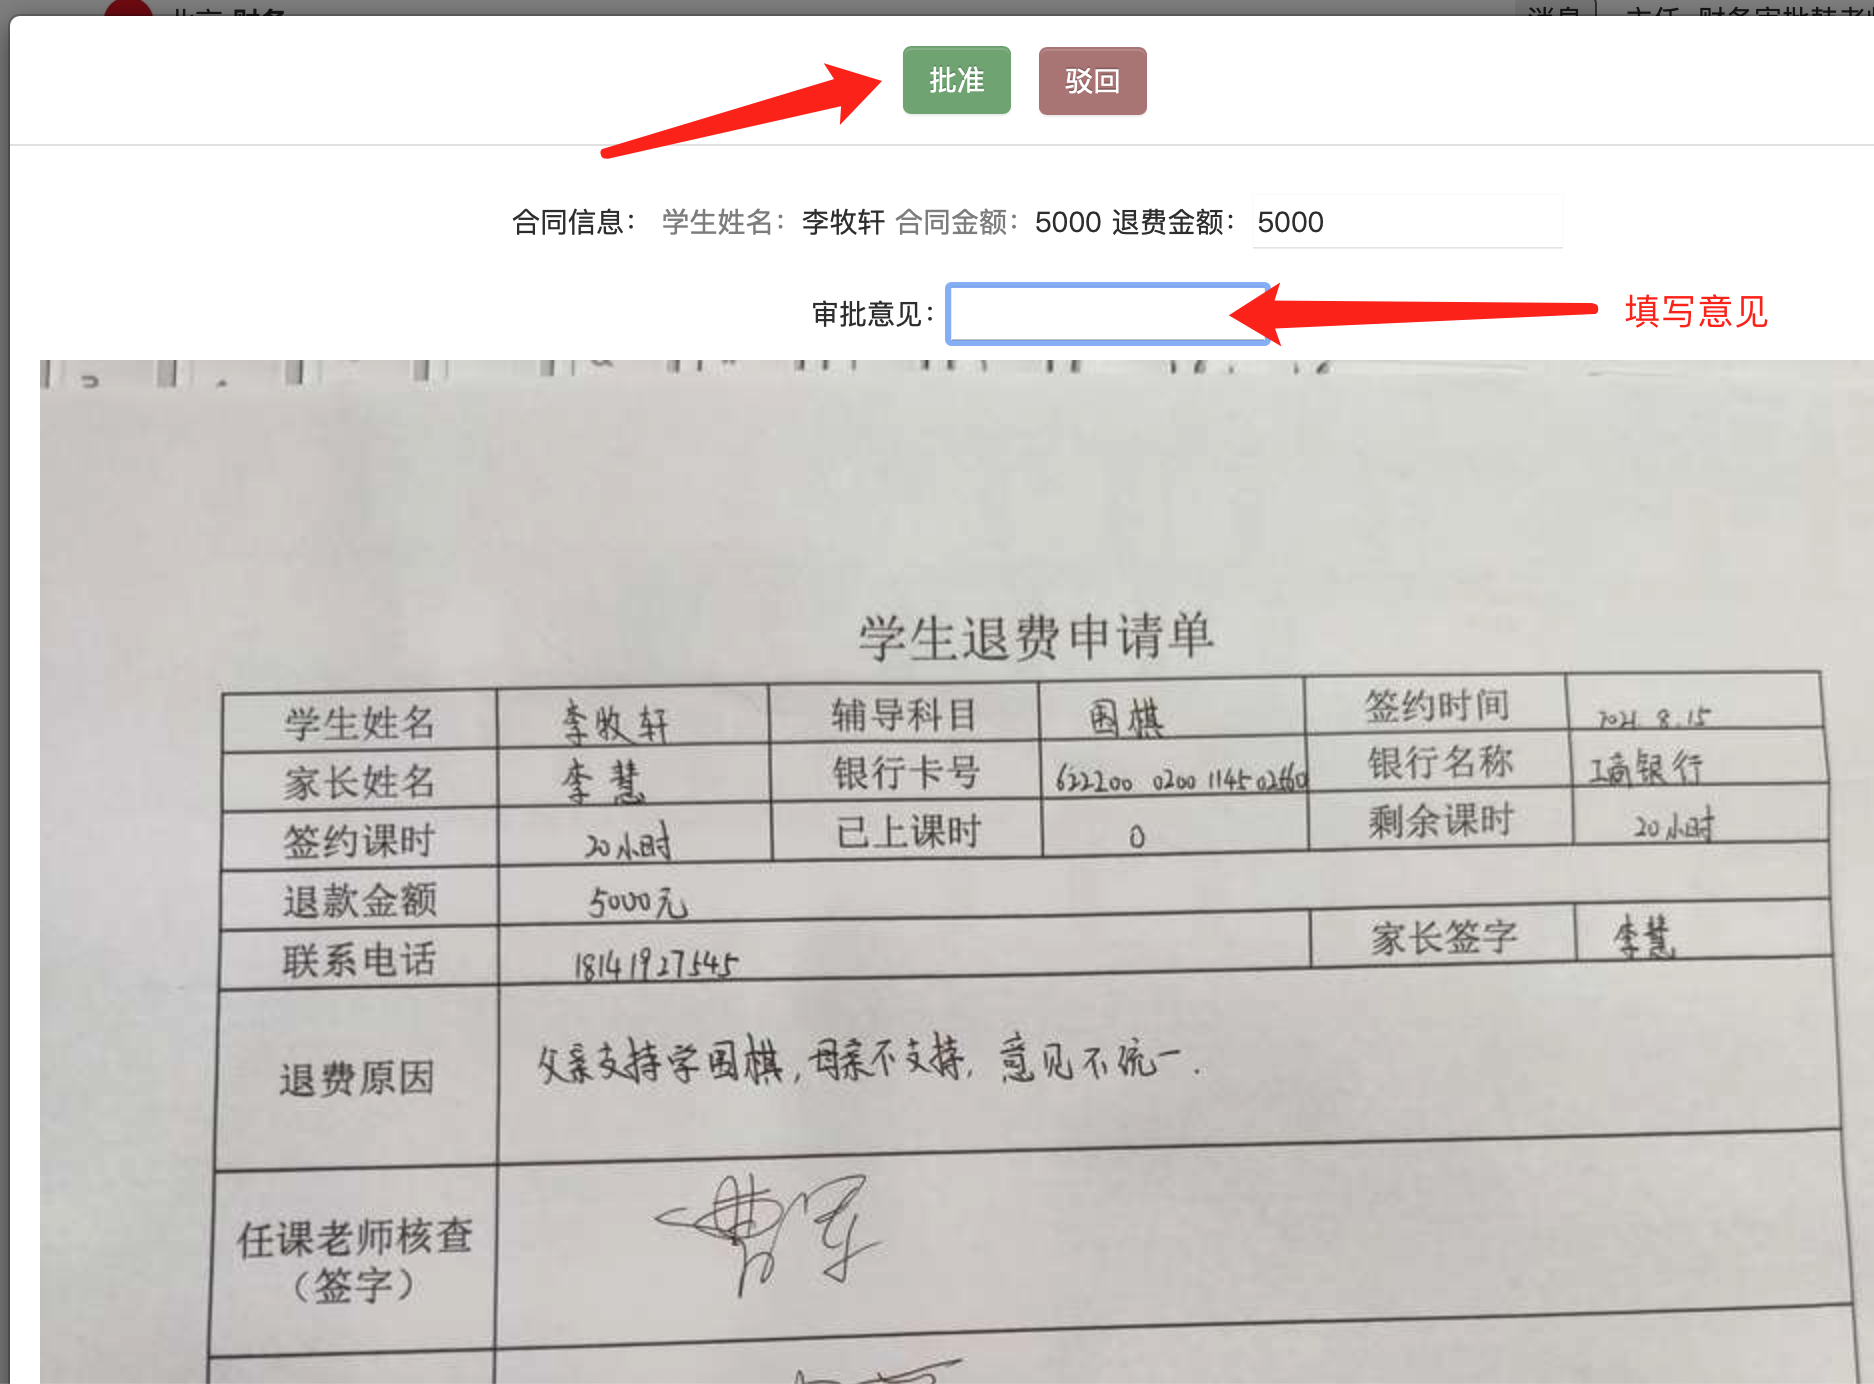 批准 驳回
合同信息： 学生姓名：李牧轩 合同金额：5000 退费金额：5000
审批意见： 填写意见
学生退费申请单
学生姓名 李牧轩 辅导科目 围棋 签约时间 2021.8.15
家长姓名 李慧 银行卡号 622200 0200 1145 02660 银行名称 工商银行
签约课时 20小时 已上课时 0 剩余课时 20小时
退款金额 5000元
联系电话 18141927545 家长签字 李慧
退费原因 父亲支持学围棋,母亲不支持,意见不统一.
任课老师核查
（签字）